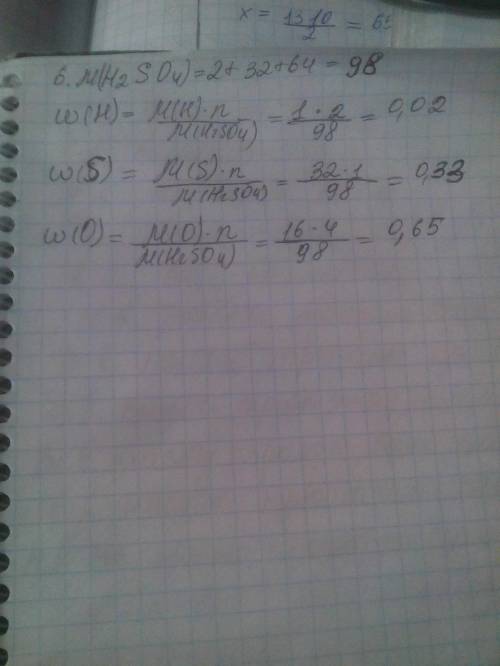 x = 1310 / 2 = 65
6. M(H₂SO₄)=2+32+64=98
w(H)= M(H)·n / M(H₂SO₄) = 1·2 / 98 = 0,02
w(S)= M(S)·n / M(H₂SO₄) = 32·1 / 98 = 0,33
w(O)= M(O)·n / M(H₂SO₄) = 16·4 / 98 = 0,65